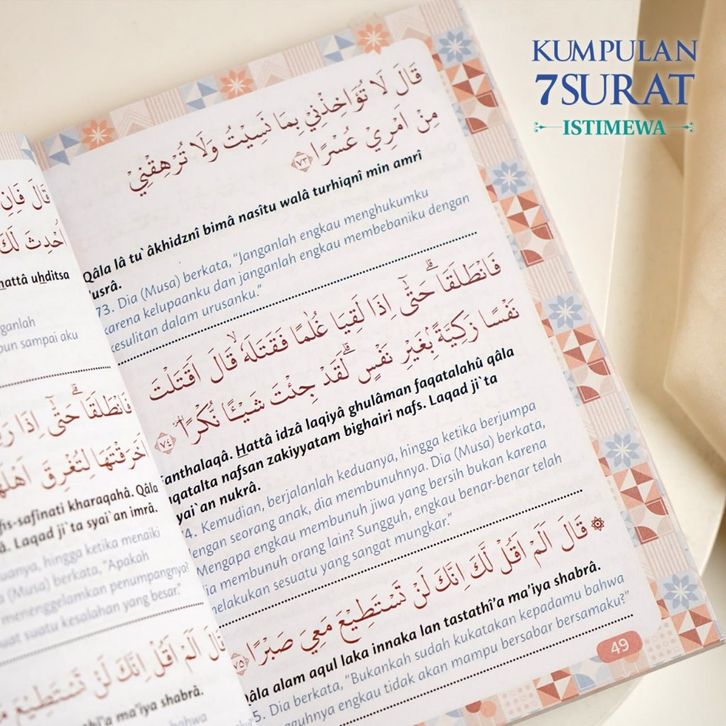 KUMPULAN
7SURAT
ISTIMEWA
قَالَ لَا تُؤَاخِذْنِيْ بِمَا نَسِيْتُ وَلَا تُرْهِقْنِيْ
مِنْ اَمْرِيْ عُسْرًا ﴿٧٣﴾
Qâla lâ tu`âkhidznî bimâ nasîtu walâ turhiqnî min amrî
usrâ.
73. Dia (Musa) berkata, “Janganlah engkau menghukumku
karena kelupaanku dan janganlah engkau membebaniku dengan
kesulitan dalam urusanku.”
فَانْطَلَقَاۗ حَتّٰٓى اِذَا لَقِيَا غُلٰمًا فَقَتَلَهٗۙ قَالَ اَقَتَلْتَ
نَفْسًا زَكِيَّةًۢ بِغَيْرِ نَفْسٍۗ لَقَدْ جِئْتَ شَيْـًٔا نُكْرًا ﴿٧٤﴾
anthalaqâ. Hattâ idzâ laqiyâ ghulâman faqatalahû qâla
aqatalta nafsan zakiyyatam bighairi nafs. Laqad ji`ta
yai`an nukrâ.
4. Kemudian, berjalanlah keduanya, hingga ketika berjumpa
dengan seorang anak, dia membunuhnya. Dia (Musa) berkata,
Mengapa engkau membunuh jiwa yang bersih bukan karena
dia membunuh orang lain? Sungguh, engkau benar-benar telah
melakukan sesuatu yang sangat mungkar.”
۞ قَالَ اَلَمْ اَقُلْ لَّكَ اِنَّكَ لَنْ تَسْتَطِيْعَ مَعِيَ صَبْرًا ﴿٧٥﴾
Qâla alam aqul laka innaka lan tastathî’a ma’iya shabrâ.
5. Dia berkata, “Bukankah sudah kukatakan kepadamu bahwa
engkau tidak akan mampu bersabar bersamaku?”
49
قَالَ فَاِنِ
اُحْدِثَ لَكَ
hattâ uhditsa
janganlah
pun sampai aku
فَانْطَلَقَاۗ حَتّٰٓى اِذَا
خَرَقْتَهَا لِتُغْرِقَ اَهْلَهَا
fis-safînati kharaqahâ. Qâla
Laqad ji`ta syai`an imrâ.
keduanya, hingga ketika menaiki
(Musa) berkata, “Apakah
menenggelamkan penumpangnya?
suatu kesalahan yang besar.”
قَالَ اَلَمْ اَقُلْ اِنَّكَ لَنْ تَسْتَطِيْعَ
tastathî’a ma’iya shabrâ.